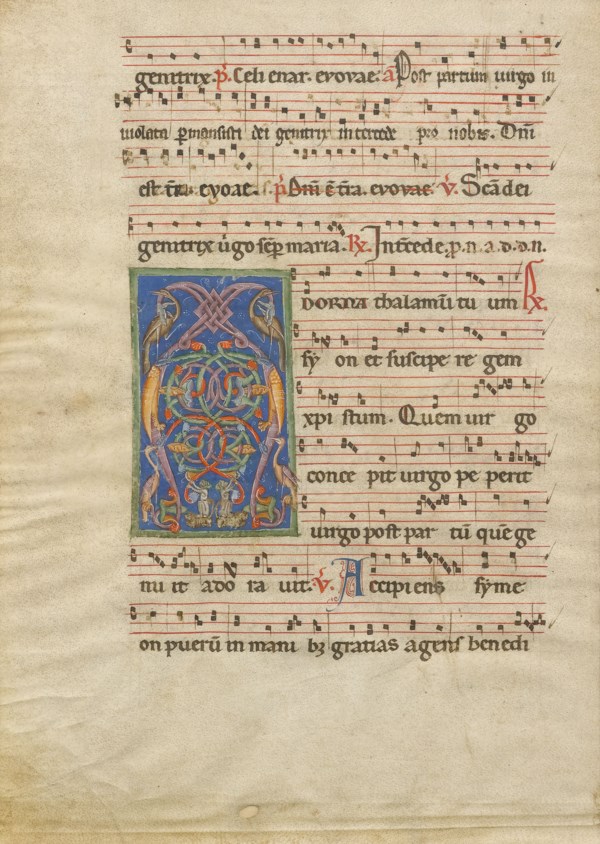 genitrix. p̄. Celi enar. evovae. a̅ Post partum virgo in
violata p̱mansisti dei genitrix intercede pro nobis. Dn̄i
est t̄ra. evovae. p̄. Dn̄i ē t̄ra. evovae. v̄. Sc̄a dei
genitrix v̇go sēp̱ maria. ℞. Int̄cede. p. n. a. d. d. n.
DORNA thalamū tu um ℞.
sy on et suscipe re gem
xpi stum. Quem uir go
conce pit uirgo pe perit
uirgo post par tū quē ge
nu it ado ra uit. v̄. Accipiens syme
on puerū in mani bꝫ gratias agens benedi